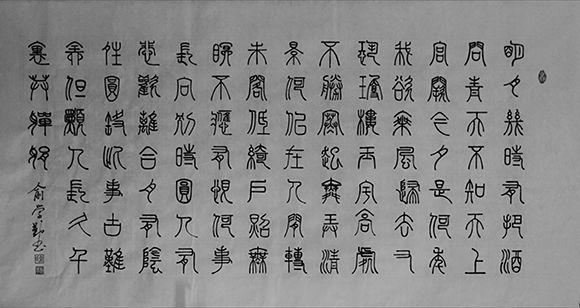 明月幾時有把酒
問青天不知天上
宮闕今夕是何年
我欲乘風歸去又
恐瓊樓玉宇高處
不勝寒起舞弄清
景何似在人間轉
朱閣低綺戶照無
眠不應有恨何事
長向別時圓人有
悲歡離合月有陰
晴圓缺此事古難
全但願人長久千
里共嬋娟